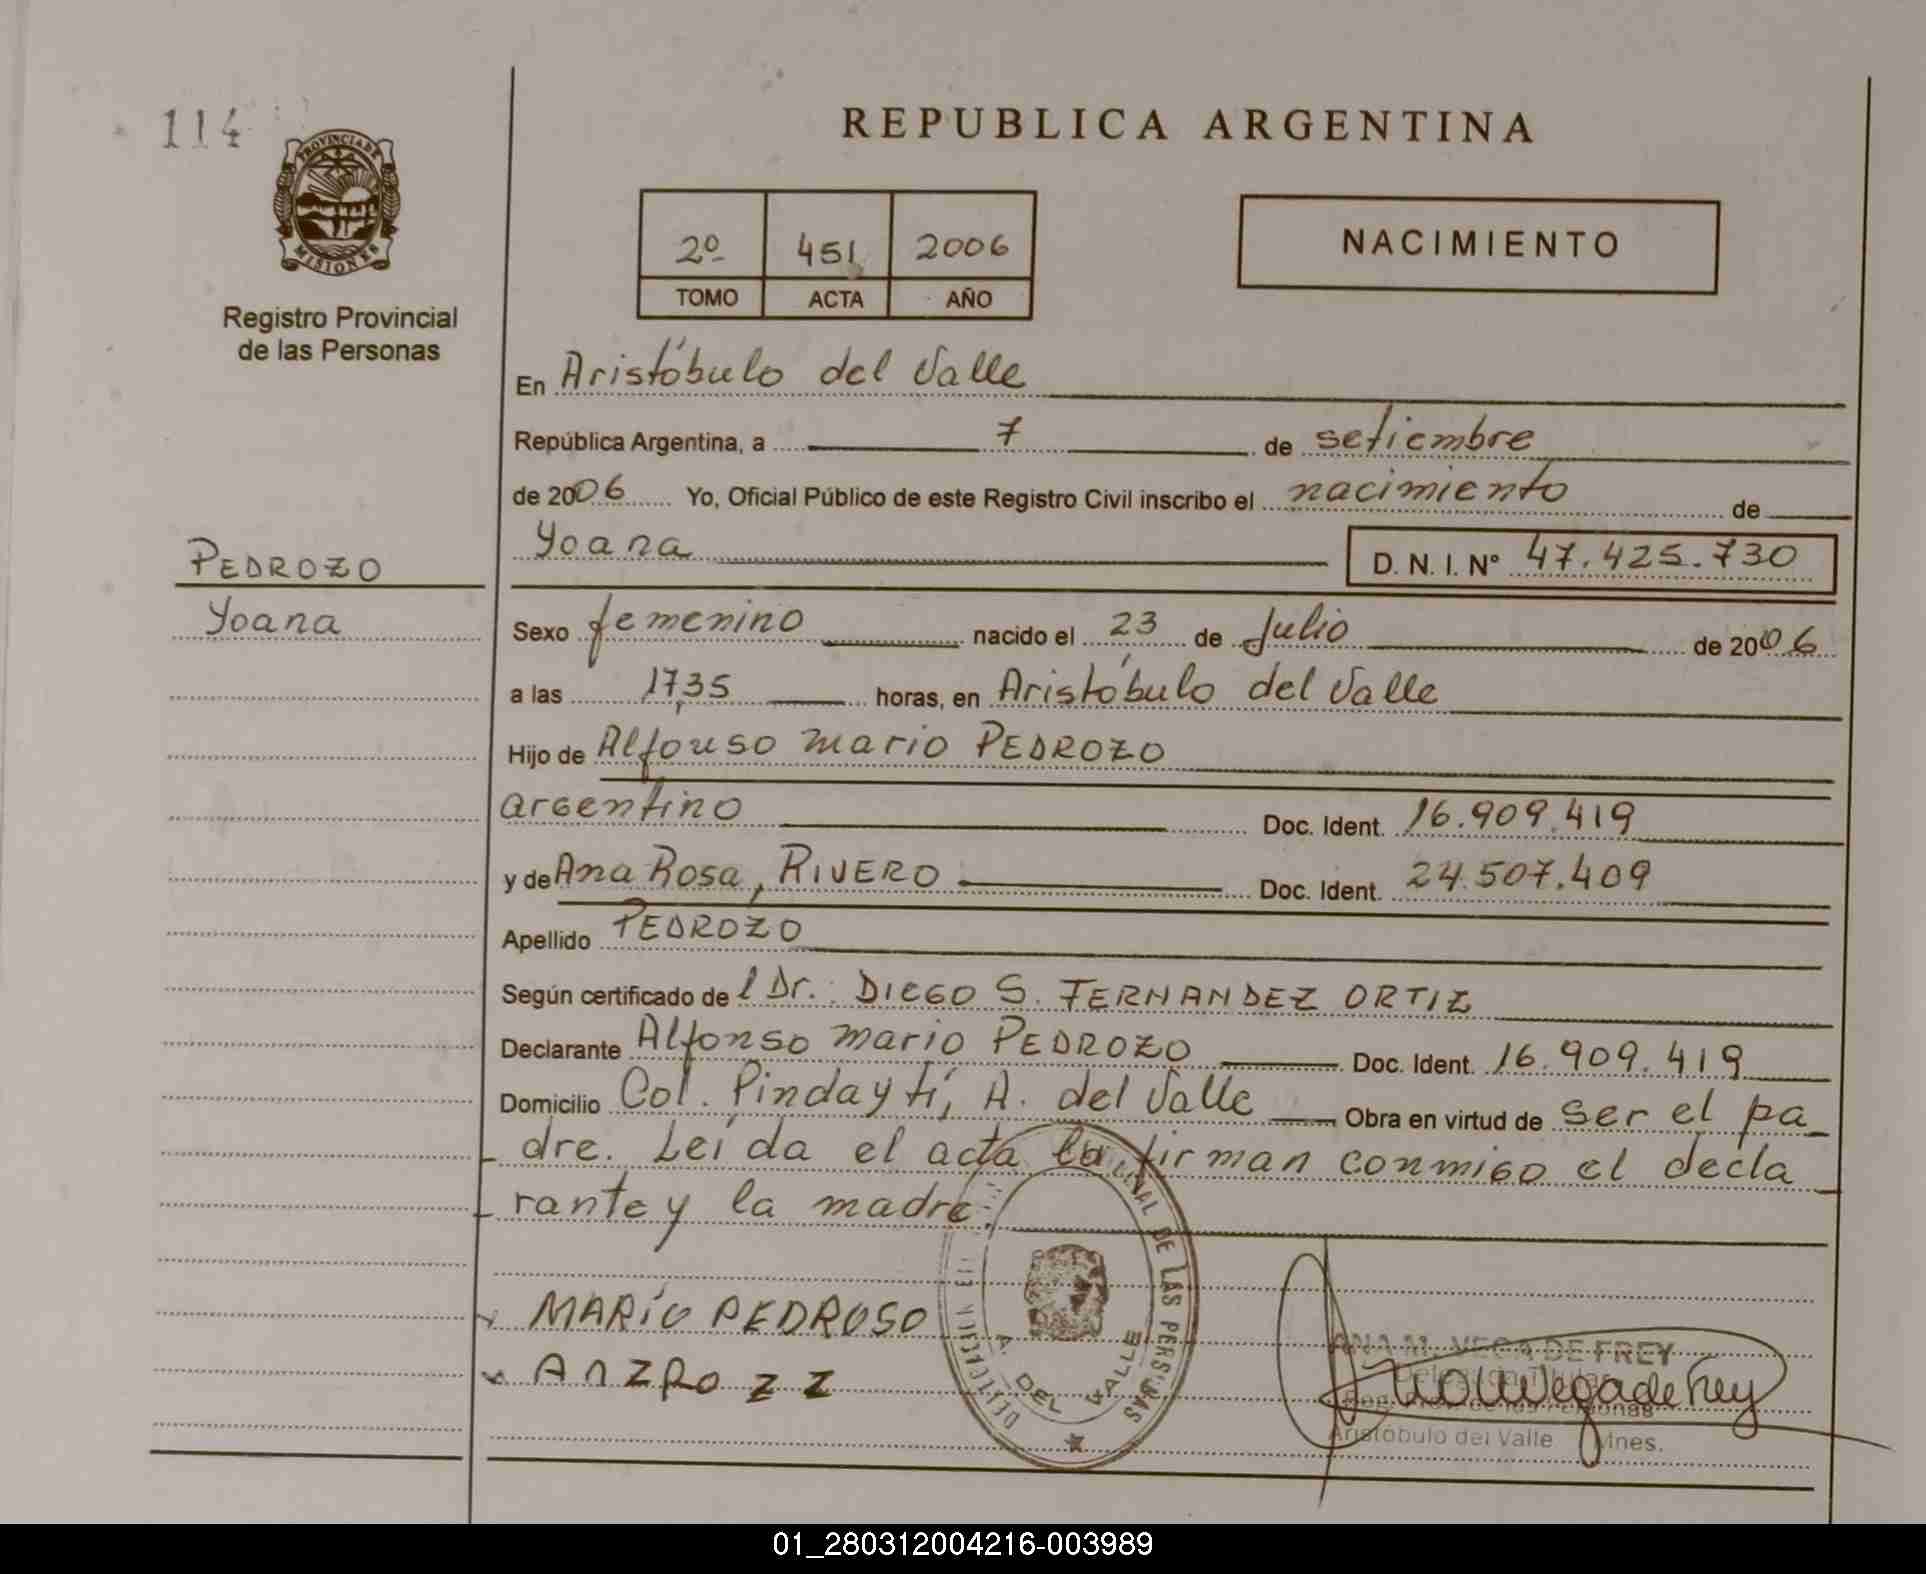 114
REPUBLICA ARGENTINA
PROVINCIA DE MISIONES
2º 451 2006
TOMO ACTA AÑO
NACIMIENTO
Registro Provincial
de las Personas
En Aristóbulo del Valle
República Argentina, a 7 de setiembre
de 2006 Yo, Oficial Público de este Registro Civil inscribo el nacimiento de
Yoana D. N. I. Nº 47.425.730
PEDROZO
Yoana
Sexo femenino nacido el 23 de Julio de 2006
a las 17,35 horas, en Aristóbulo del Valle
Hijo de Alfonso Mario PEDROZO
argentino Doc. Ident. 16.909.419
y de Ana Rosa, RIVERO Doc. Ident. 24.507.409
Apellido PEDROZO
Según certificado de l Dr. DIEGO S. FERNANDEZ ORTIZ
Declarante Alfonso Mario PEDROZO Doc. Ident. 16.909.419
Domicilio Col. Pindaytí, A. del Valle Obra en virtud de ser el pa_
_dre. Leída el acta la firman conmigo el decla_
_rante y la madre.
MARIO PEDROSO
DE LAS PERSONAS
A. DEL VALLE
ANA M. VEGA DE FREY
Delegada Titular
Aristóbulo del Valle Mnes.
01_280312004216-003989